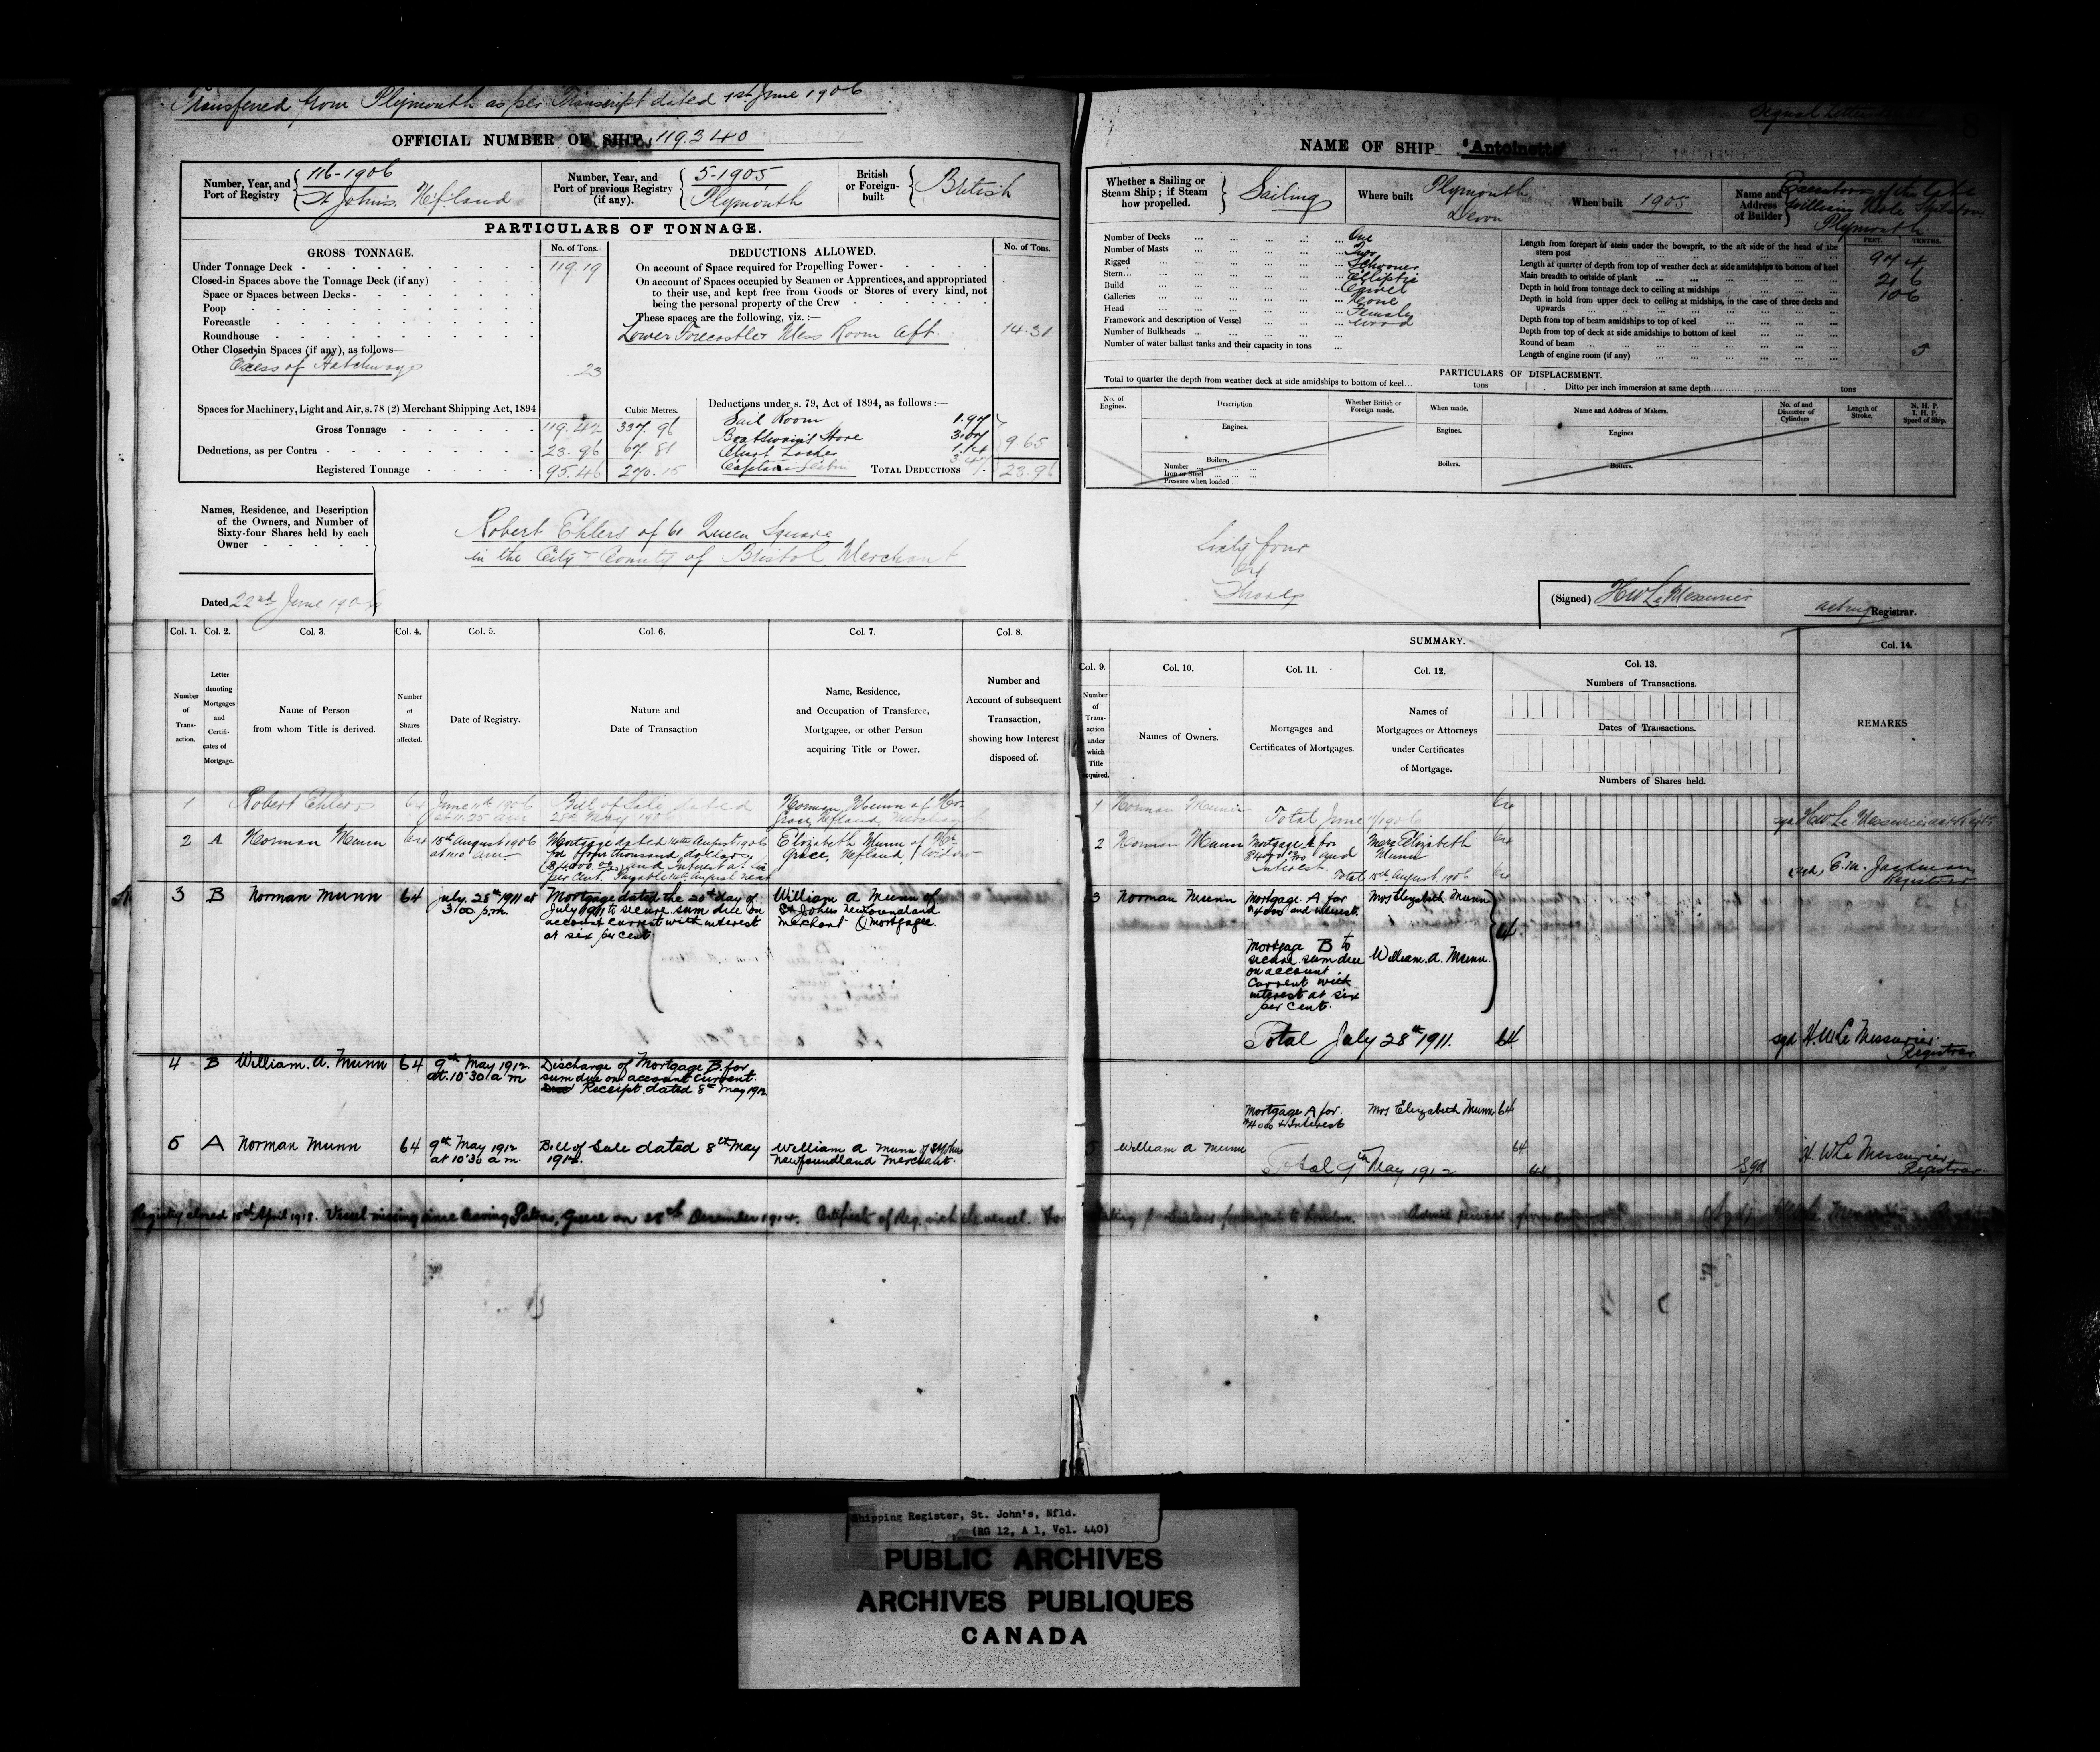 Transferred from Plymouth as per Transcript dated 1st June 1906
OFFICIAL NUMBER OF SHIP 119.340
Number, Year, and Port of Registry
116-1906
St John's. Nf.land
Number, Year, and Port of previous Registry (if any).
5-1905
Plymouth
British or Foreign-built
British
PARTICULARS OF TONNAGE.
GROSS TONNAGE.
No. of Tons.
Under Tonnage Deck 119.19
Closed-in Spaces above the Tonnage Deck (if any)
Space or Spaces between Decks
Poop
Forecastle
Roundhouse
Other Closed-in Spaces (if any), as follows—
Excess of Hatchways .23
Spaces for Machinery, Light and Air, s. 78 (2) Merchant Shipping Act, 1894
Cubic Metres.
Gross Tonnage 119.42 337.96
Deductions, as per Contra 23.96 67.81
Registered Tonnage 95.46 270.15
DEDUCTIONS ALLOWED.
No. of Tons.
On account of Space required for Propelling Power
On account of Spaces occupied by Seamen or Apprentices, and appropriated
to their use, and kept free from Goods or Stores of every kind, not
being the personal property of the Crew
These spaces are the following, viz. :—
Lower Forecastle & Mess Room Aft. 14.31
Deductions under s. 79, Act of 1894, as follows :—
Sail Room 1.97
Boatswain's Store 3.07
Chart Locker
9.65
TOTAL DEDUCTIONS 23.96
Names, Residence, and Description
of the Owners, and Number of
Sixty-four Shares held by each
Owner
Robert Ehlers of 61 Queen Square
in the City & County of Bristol Merchant
Dated 22nd June 1906
Col. 1. Col. 2. Col. 3. Col. 4. Col. 5. Col. 6. Col. 7. Col. 8.
Number of Transaction.
Letter denoting Mortgages and Certificates of Mortgage.
Name of Person from whom Title is derived.
Number of Shares affected.
Date of Registry.
Nature and Date of Transaction
Name, Residence, and Occupation of Transferee, Mortgagee, or other Person acquiring Title or Power.
Number and Account of subsequent Transaction, showing how Interest disposed of.
1 Robert Ehlers 64 June 11th 1906 at 11.25 am Bill of Sale dated 28th May 1906 Norman Munn of Hr. Grace, Nfland, Merchant
2 A Norman Munn 64 15th August 1906
Mortgage dated 14th August 1906
for four thousand dollars
($4000.00) and Interest at six
per cent. Payable
Elizabeth Munn of Hr Grace, Nfland, Widow
3 B Norman Munn 64 July 28th 1911 at 3.00 p.m.
Mortgage dated the 20th day of
July 1911 to secure sum due on
account current with interest
at six per cent.
William A Munn of
St Johns Newfoundland
Merchant mortgagee.
4 B William. A. Munn 64 9th May 1912. at 10:30 a m
Discharge of Mortgage B. for
sum due on account current.
Receipt dated 8th May 1912
5 A Norman Munn 64 9th May 1912 at 10:30 a m.
Bill of Sale dated 8th May 1912.
William A Munn of St Johns
Newfoundland Merchant.
Registry closed 15th April 1918. Vessel missing since leaving Patras, Greece on 28th December 1914. Certificate of Reg. with the vessel.
NAME OF SHIP "Antoinette"
Whether a Sailing or Steam Ship ; if Steam how propelled.
Sailing
Where built
Plymouth
Devon
When built 1905
Name and Address of Builder
Executors of the late
William
Plymouth
Number of Decks One
Number of Masts Two
Rigged Schooner
Stern Elliptic
Build Carvel
Galleries None
Head Female
Framework and description of Vessel Wood
Number of Bulkheads
Number of water ballast tanks and their capacity in tons
FEET. TENTHS.
Length from forepart of stem under the bowsprit, to the aft side of the head of the stern post 97 4
Length at quarter of depth from top of weather deck at side amidships to bottom of keel
Main breadth to outside of plank
Depth in hold from tonnage deck to ceiling at midships
Depth in hold from upper deck to ceiling at midships, in the case of three decks and upwards
Depth from top of beam amidships to top of keel
Depth from top of deck at side amidships to bottom of keel
Round of beam 5
Length of engine room (if any)
PARTICULARS OF DISPLACEMENT.
Total to quarter the depth from weather deck at side amidships to bottom of keel tons
Ditto per inch immersion at same depth tons
No. of Engines.
Description
Whether British or Foreign made.
When made.
Name and Address of Makers.
No. of and Diameter of Cylinders
Length of Stroke.
N. H. P. I. H. P. Speed of Ship.
Engines. Engines. Engines
Boilers. Boilers. Boilers.
Number
Iron or Steel
Pressure when loaded
Sixty four
64
Shares
(Signed) H W Le Messurier
acting Registrar.
SUMMARY.
Col. 9. Col. 10. Col. 11. Col. 12. Col. 13. Col. 14.
Number of Transaction under which Title acquired.
Names of Owners.
Mortgages and Certificates of Mortgages.
Names of Mortgagees or Attorneys under Certificates of Mortgage.
Numbers of Transactions.
Dates of Transactions.
Numbers of Shares held.
REMARKS
1 Norman Munn 64
Total June 1906
sgd H W Le Messurier
2 Norman Munn Mortgage A for $4000.00 and Interest. Mrs Elizabeth Munn 64
Total 15th August, 1906 64
sgd, E.M. Jackman
Registrar
3 Norman Munn Mortgage A for $4000 and interest. Mrs Elizabeth Munn 64
Mortgage B to
secure sum due
on account
current with
interest at six
per cent.
William. A. Munn.
Total July 28th 1911. 64
sgd H. W Le Messurier.
Registrar.
Mortgage A for $4000 & Interest Mrs Elizabeth Munn 64
5 William A Munn 64
Total 9th May 1912 64
Sgd. H. W Le Messurier
Registrar.
Shipping Register, St. John's, Nfld.
(RG 12, A 1, Vol. 440)
PUBLIC ARCHIVES
ARCHIVES PUBLIQUES
CANADA